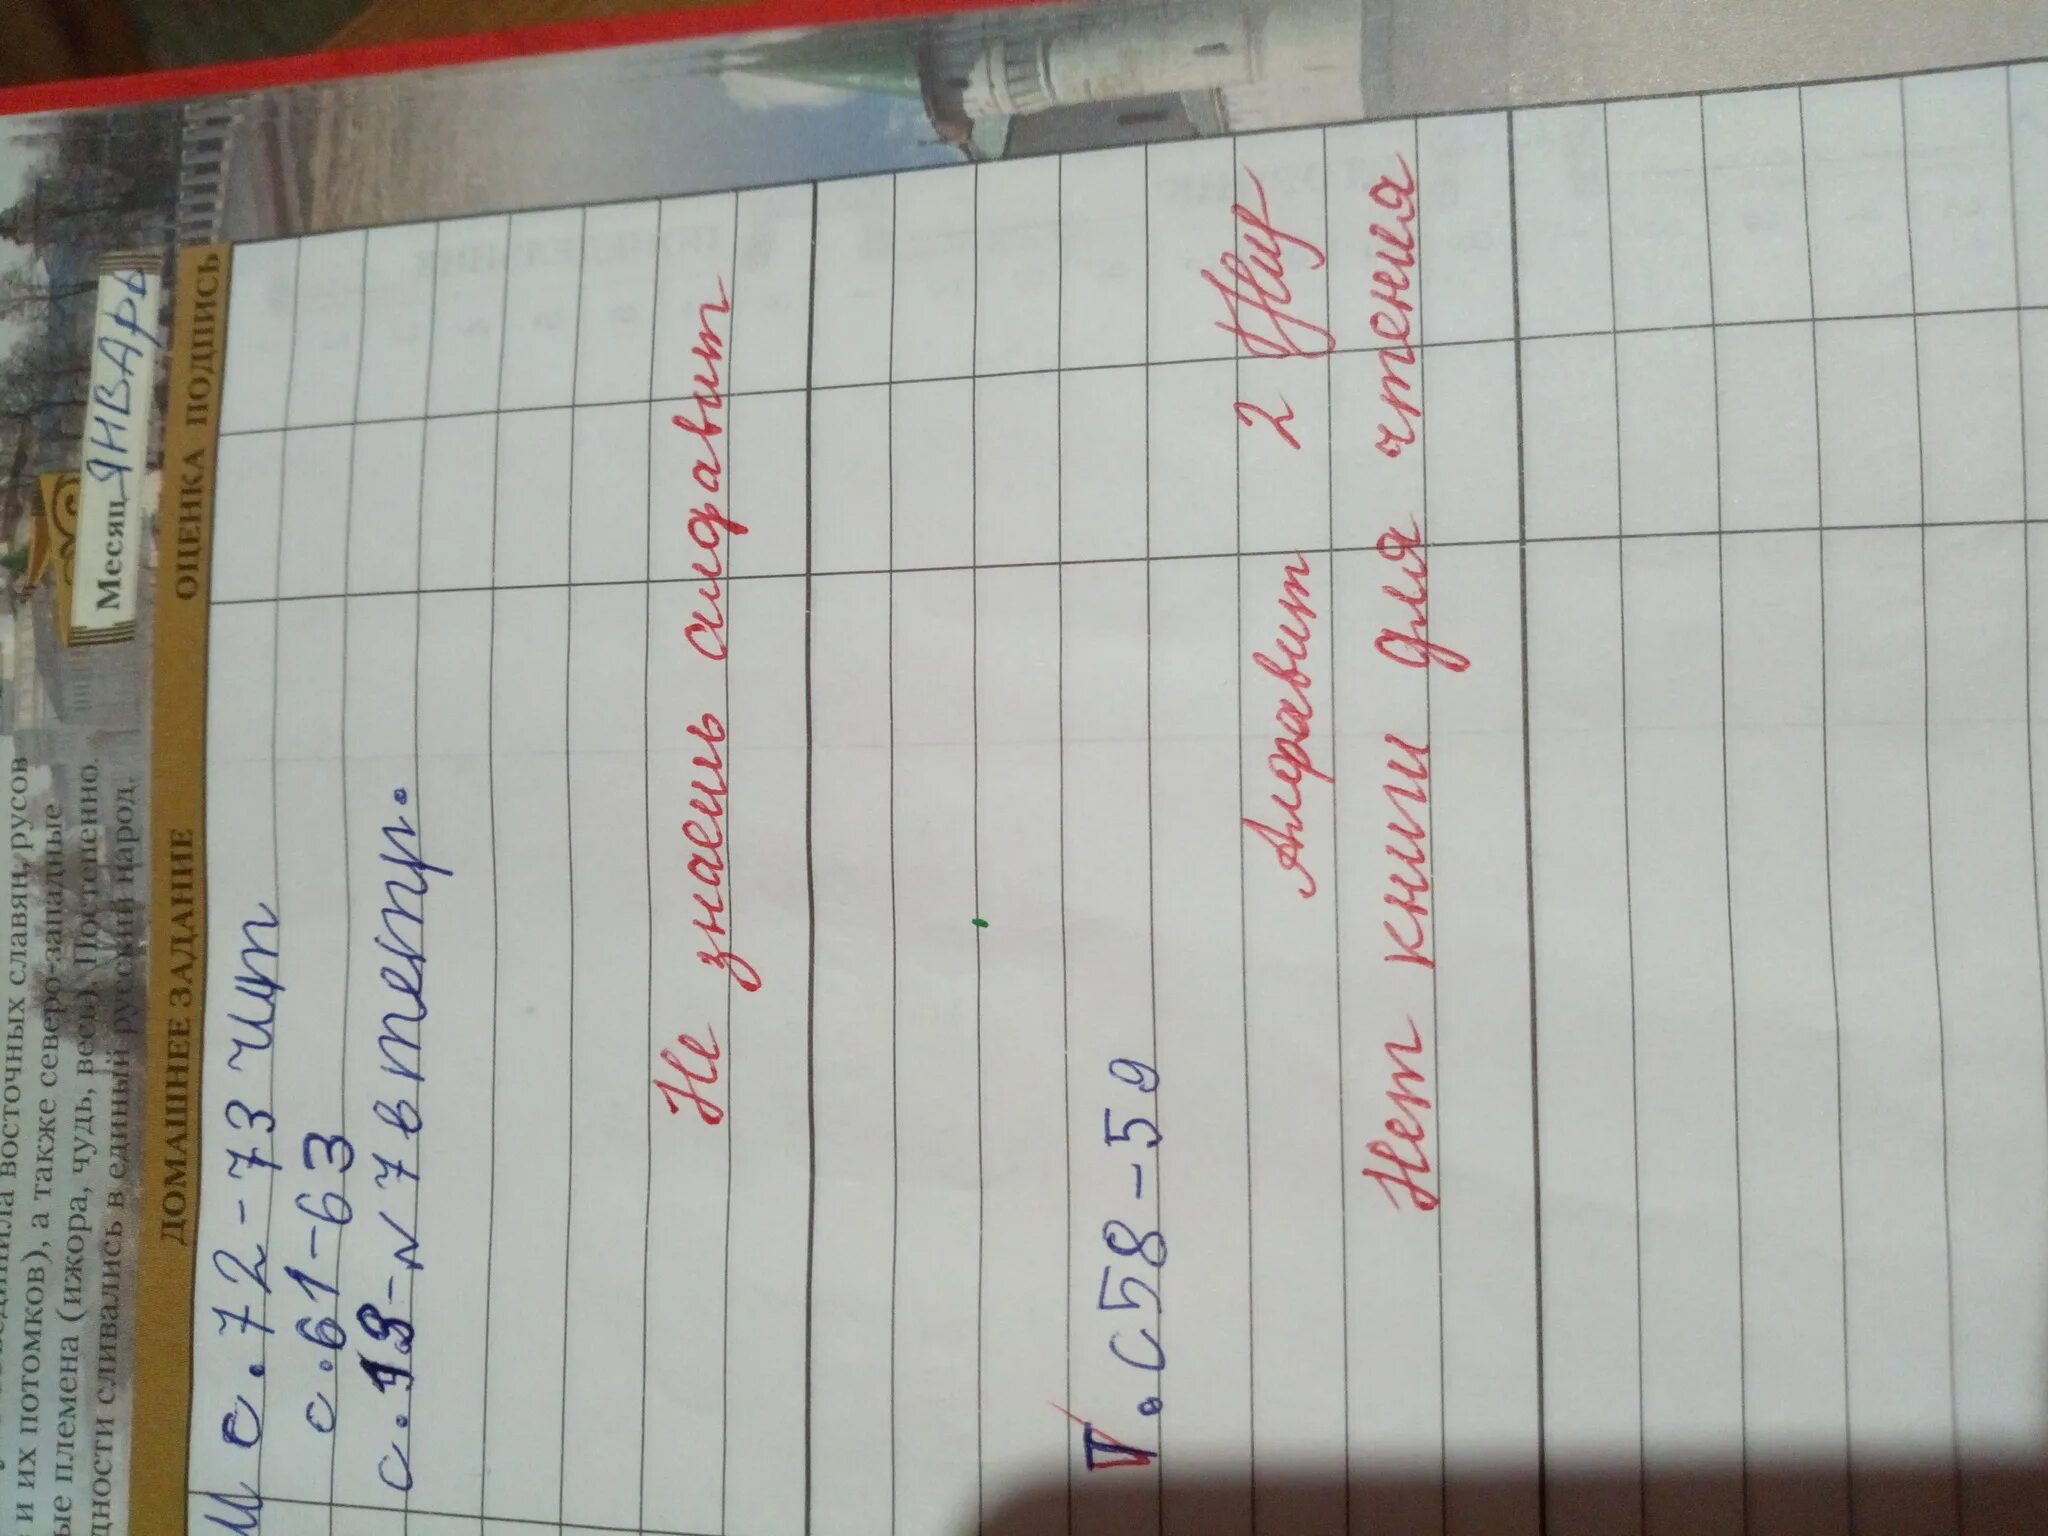 единила восточных славян, русов
и их потомков), а также северо-западные
племена (ижора, чудь, весь). Постепенно
сливались в единый русский народ.
Месяц ЯНВАрь
ДОМАШНЕЕ ЗАДАНИЕ ОЦЕНКА ПОДПИСЬ
с. 72-73 чит
с. 61-63
N 7 в тетр.
Не знаешь алфавит
с 58-59
Алфавит 2
Нет книги для чтения